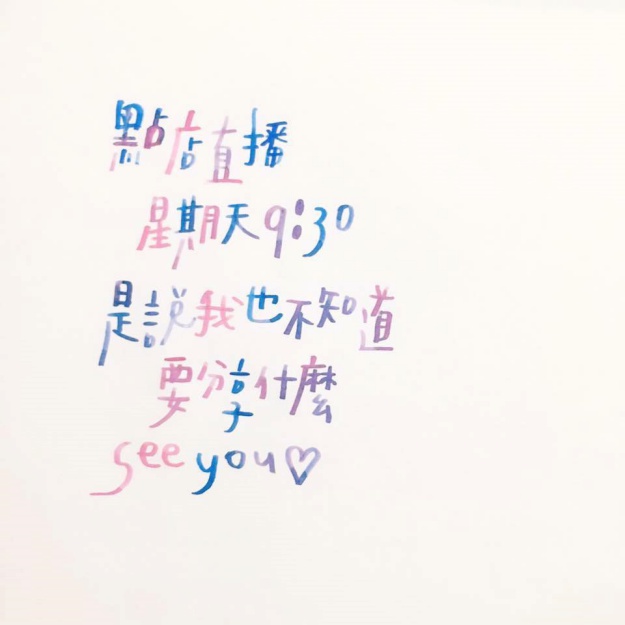 點店直播
星期天9:30
是說我也不知道
要分享什麼
see you♡